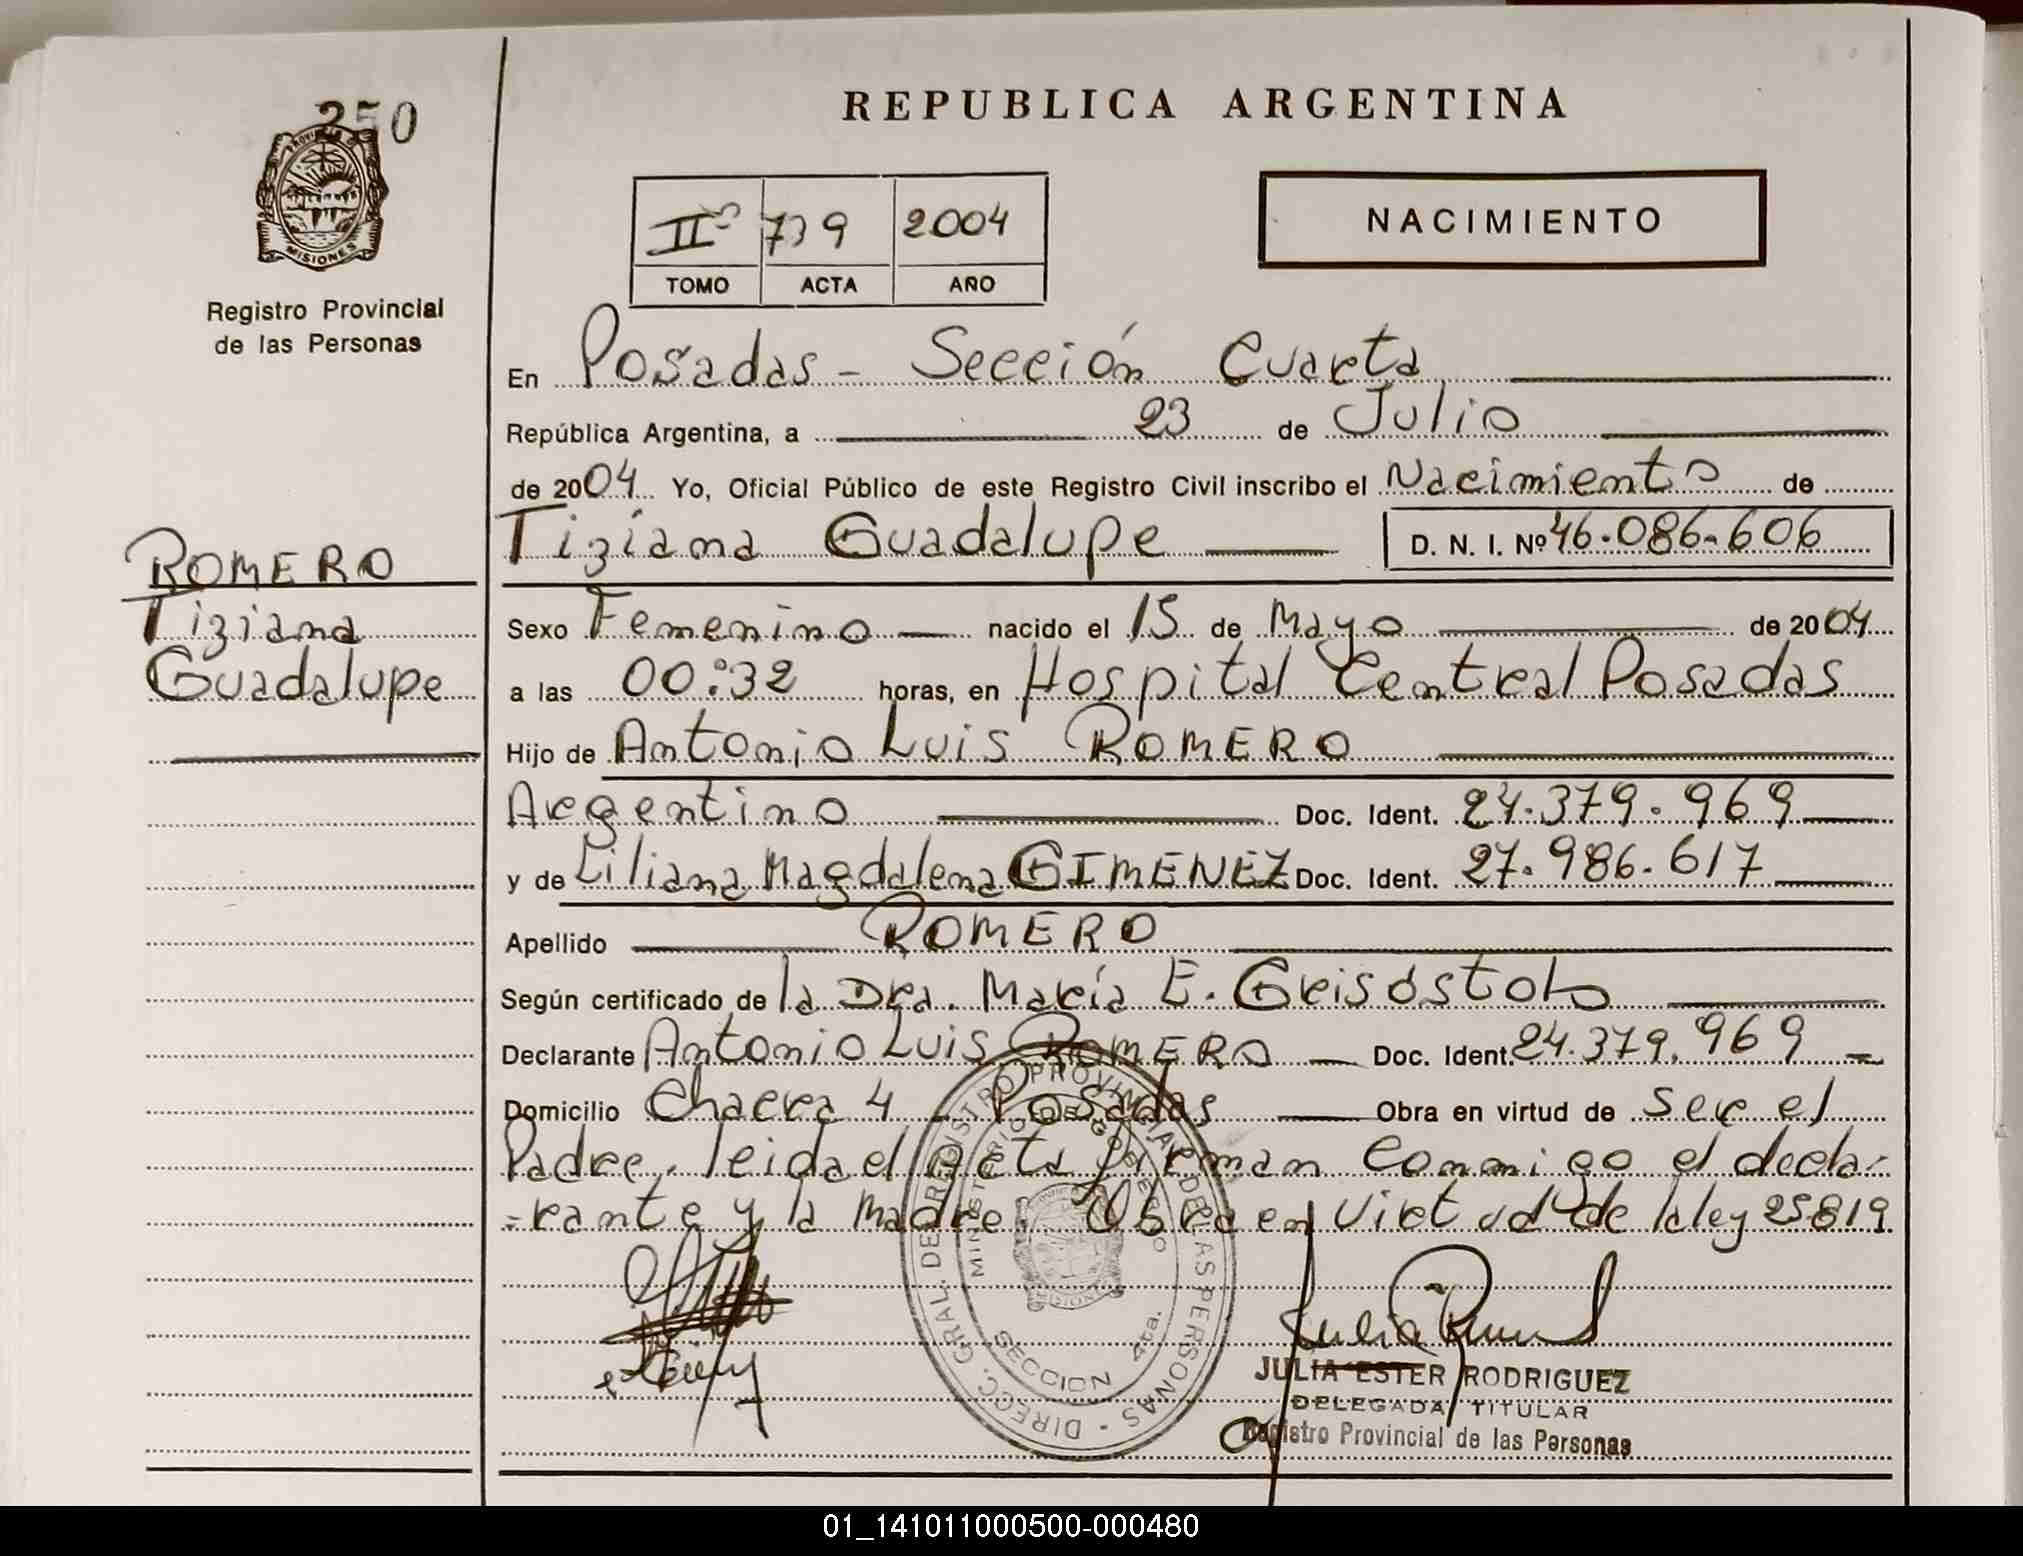 250
PROVINCIA DE
MISIONES
Registro Provincial
de las Personas
REPUBLICA ARGENTINA
IIº 739 2004
TOMO ACTA AÑO
NACIMIENTO
En Posadas - Sección Cuarta
República Argentina, a 23 de Julio
de 2004 Yo, Oficial Público de este Registro Civil inscribo el Nacimiento de
Tiziana Guadalupe D. N. I. Nº 46.086.606
ROMERO
Tiziana
Guadalupe
Sexo Femenino nacido el 15 de Mayo de 2004
a las 00:32 horas, en Hospital Central Posadas
Hijo de Antonio Luis ROMERO
Argentino Doc. Ident. 24.379.969
y de Liliana Magdalena GIMENEZ Doc. Ident. 27.986.617
Apellido ROMERO
Según certificado de la Dra. María E. Grisóstolo
Declarante Antonio Luis ROMERO Doc. Ident. 24.379.969
Domicilio Chacra 4 - Posadas Obra en virtud de ser el
Padre, leida el acta firman conmigo el decla-
-rante y la madre. Obra en Virtud de la ley 25819
DIRECC. GRAL. DE REGISTRO PROVINCIAL DE LAS PERSONAS -
MINISTERIO DE GOBIERNO
MISIONES
SECCION 4ta.
JULIA ESTER RODRIGUEZ
DELEGADA TITULAR
Registro Provincial de las Personas
01_141011000500-000480